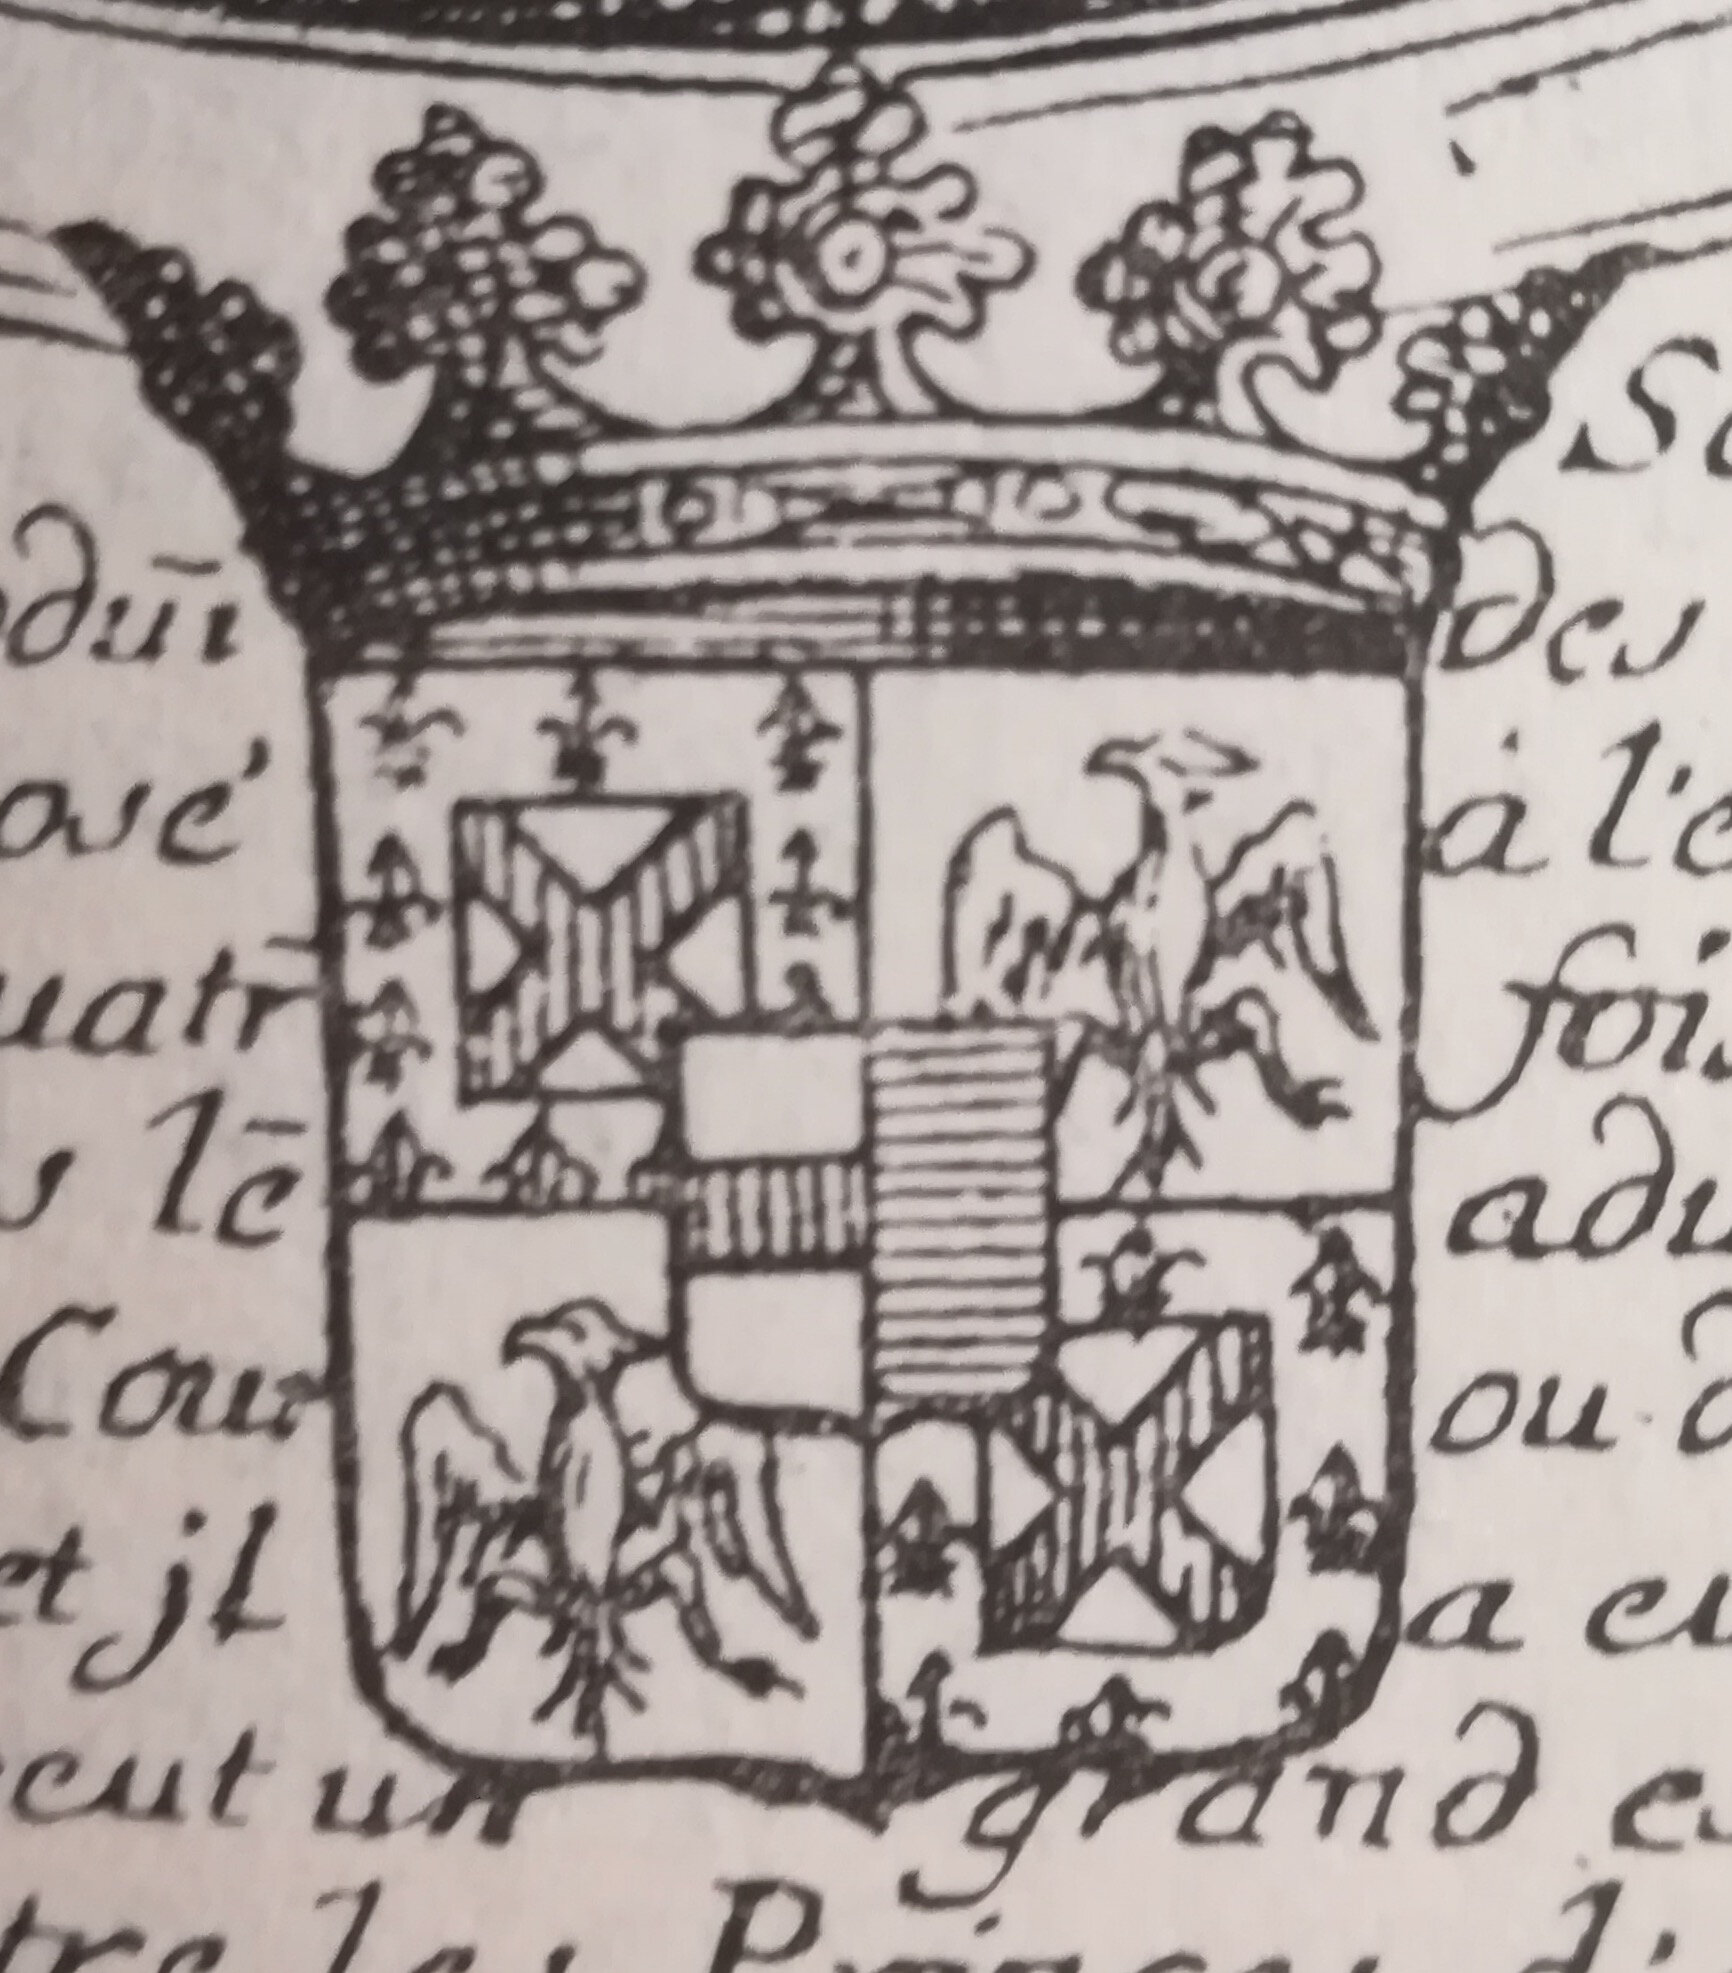 So
dui des
osé à l'e
uatr fois
s lē adu
Cour ou d
et jl a eu
ecut un grand es
tre les Princes di